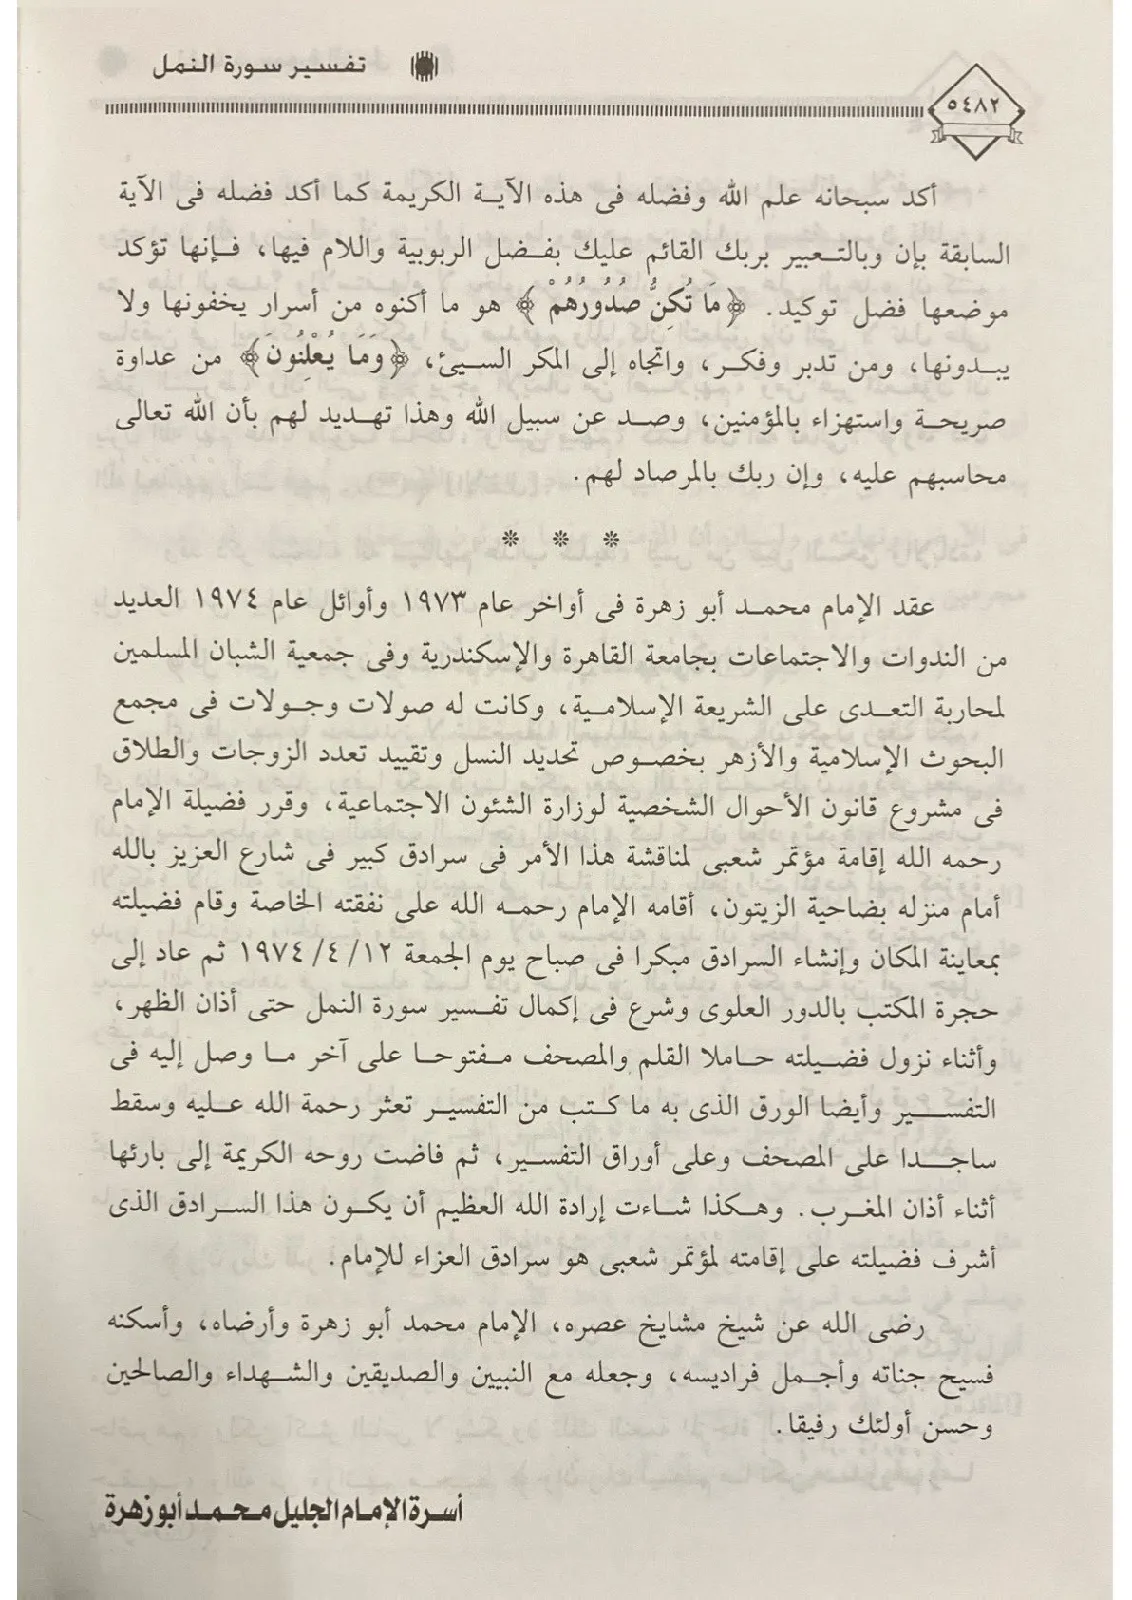 تفسير سورة النمل
٥٤٨٢
أكد سبحانه علم الله وفضله فى هذه الآية الكريمة كما أكد فضله فى الآية
السابقة بإن وبالتعبير بربك القائم عليك بفضل الربوبية واللام فيها، فإنها تؤكد
موضعها فضل توكيد. ﴿مَا تُكِنُّ صُدُورُهُمْ﴾ هو ما أكنوه من أسرار يخفونها ولا
يبدونها، ومن تدبر وفكر، واتجاه إلى المكر السيئ، ﴿وَمَا يُعْلِنُونَ﴾ من عداوة
صريحة واستهزاء بالمؤمنين، وصد عن سبيل الله وهذا تهديد لهم بأن الله تعالى
محاسبهم عليه، وإن ربك بالمرصاد لهم.
* * *
عقد الإمام محمد أبو زهرة فى أواخر عام ١٩٧٣ وأوائل عام ١٩٧٤ العديد
من الندوات والاجتماعات بجامعة القاهرة والإسكندرية وفى جمعية الشبان المسلمين
لمحاربة التعدى على الشريعة الإسلامية، وكانت له صولات وجولات فى مجمع
البحوث الإسلامية والأزهر بخصوص تحديد النسل وتقييد تعدد الزوجات والطلاق
فى مشروع قانون الأحوال الشخصية لوزارة الشئون الاجتماعية، وقرر فضيلة الإمام
رحمه الله إقامة مؤتمر شعبى لمناقشة هذا الأمر فى سرادق كبير فى شارع العزيز بالله
أمام منزله بضاحية الزيتون، أقامه الإمام رحمه الله على نفقته الخاصة وقام فضيلته
بمعاينة المكان وإنشاء السرادق مبكرا فى صباح يوم الجمعة ١٢/ ٤/ ١٩٧٤ ثم عاد إلى
حجرة المكتب بالدور العلوى وشرع فى إكمال تفسير سورة النمل حتى أذان الظهر،
وأثناء نزول فضيلته حاملا القلم والمصحف مفتوحا على آخر ما وصل إليه فى
التفسير وأيضا الورق الذى به ما كتب من التفسير تعثر رحمة الله عليه وسقط
ساجدا على المصحف وعلى أوراق التفسير، ثم فاضت روحه الكريمة إلى بارئها
أثناء أذان المغرب. وهكذا شاءت إرادة الله العظيم أن يكون هذا السرادق الذى
أشرف فضيلته على إقامته لمؤتمر شعبى هو سرادق العزاء للإمام.
رضى الله عن شيخ مشايخ عصره، الإمام محمد أبو زهرة وأرضاه، وأسكنه
فسيح جناته وأجمل فراديسه، وجعله مع النبيين والصديقين والشهداء والصالحين
وحسن أولئك رفيقا.
أسرة الإمام الجليل محمد أبو زهرة